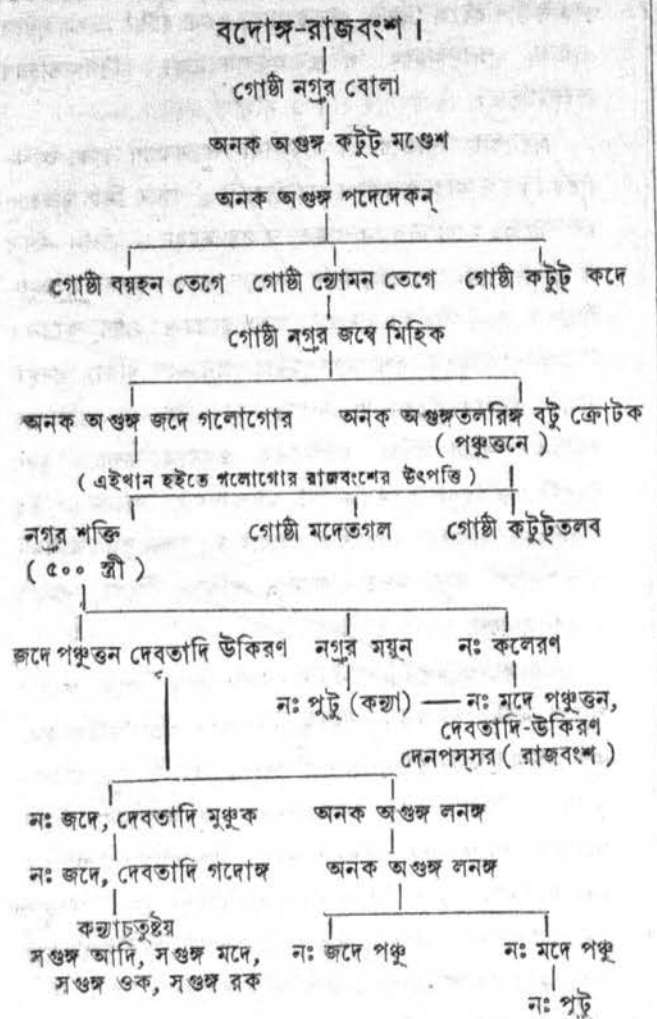 বদোঙ্গ-রাজবংশ।
গোষ্ঠী নগুর বোলা
অনক অগুঙ্গ কটুট্ মণ্ডেশ
অনক অগুঙ্গ পদেদেকন্
গোষ্ঠী বয়হন তেগে গোষ্ঠী ন্যোমন তেগে গোষ্ঠী কটুট্ কদে
গোষ্ঠী নগুর জম্বে মিহিক
অনক অগুঙ্গ জদে গলোগোর অনক অগুঙ্গতলরিঙ্গ বটু ক্রোটক
( পঞ্চুত্তনে )
( এইখান হইতে গলোগোর রাজবংশের উৎপত্তি )
নগুর শক্তি গোষ্ঠী মদেতগল গোষ্ঠী কটুট্তলব
( ৫০০ স্ত্রী )
জদে পঞ্চুত্তন দেবতাদি উকিরণ নগুর ময়ুন নঃ কলেরণ
নঃ পুটু (কন্যা) — নঃ মদে পঞ্চুত্তন,
দেবতাদি-উকিরণ
দেনপস্সর ( রাজবংশ )
নঃ জদে, দেবতাদি মুঞ্চুক অনক অগুঙ্গ লনঙ্গ
নঃ জদে, দেবতাদি গদোঙ্গ অনক অগুঙ্গ লনঙ্গ
কন্যাচতুষ্টয়
সগুঙ্গ আদি, সগুঙ্গ মদে, নঃ জদে পঞ্চু নঃ মদে পঞ্চু
সগুঙ্গ ওক, সগুঙ্গ রক
নঃ পুটু